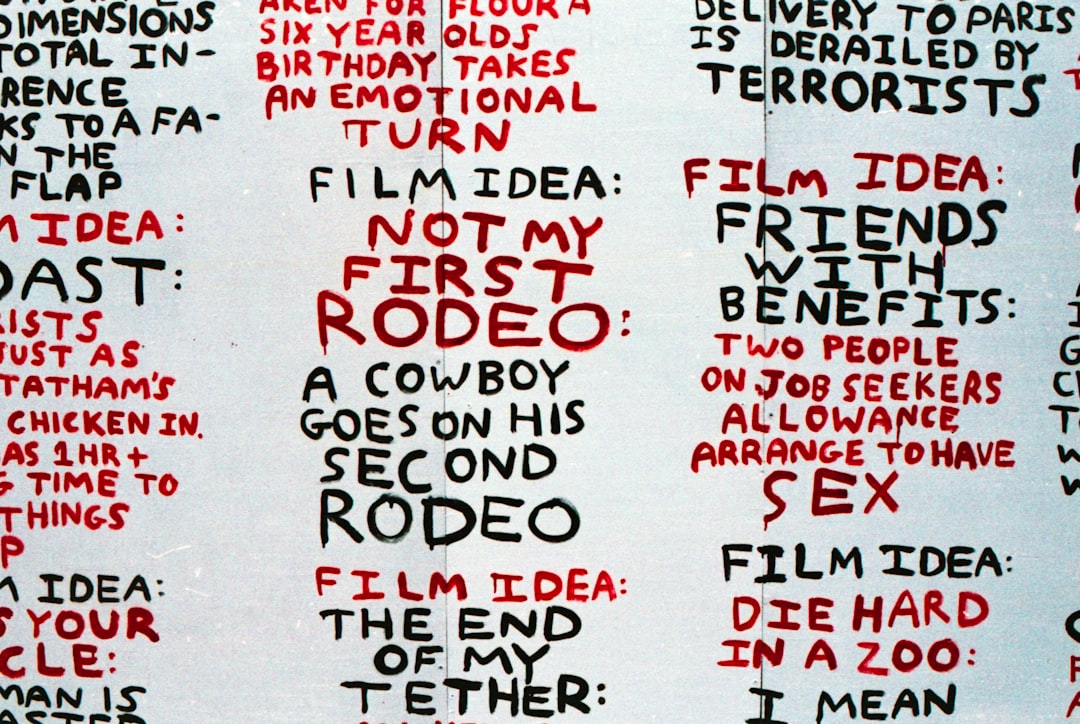 DIMENSIONS
TOTAL IN-
RENCE
KS TO A FA-
N THE
FLAP
M IDEA:
OAST:
RISTS
JUST AS
TATHAM'S
CHICKEN IN.
AS 1HR+
G TIME TO
THINGS
P
M IDEA:
S YOUR
CLE:
MAN IS
ASTED
AKEN FOR FLOUR A
SIX YEAR OLDS
BIRTHDAY TAKES
AN EMOTIONAL
TURN
FILM IDEA:
NOT MY
FIRST
RODEO:
A COWBOY
GOES ON HIS
SECOND
RODEO
FILM IDEA:
THE END
OF MY
TETHER:
DELIVERY TO PARIS
IS DERAILED BY
TERRORISTS
FILM IDEA:
FRIENDS
WITH
BENEFITS:
TWO PEOPLE
ON JOB SEEKERS
ALLOWANCE
ARRANGE TO HAVE
SEX
FILM IDEA:
DIE HARD
IN A ZOO:
I MEAN